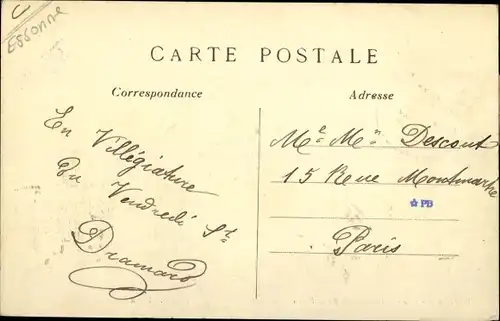 Essonne
CARTE POSTALE
Correspondance
Adresse
En Villégiature
Du Vendredi St
Dramard
Me Men Descout
15 Rue Montmartre
PB
Paris